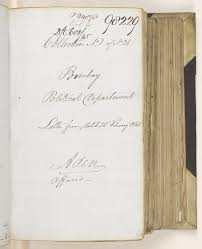 98229
Collection No. 7 of No. 28
Bombay
Political Department
Letter from, dated 28 February 1842
Aden
Affairs